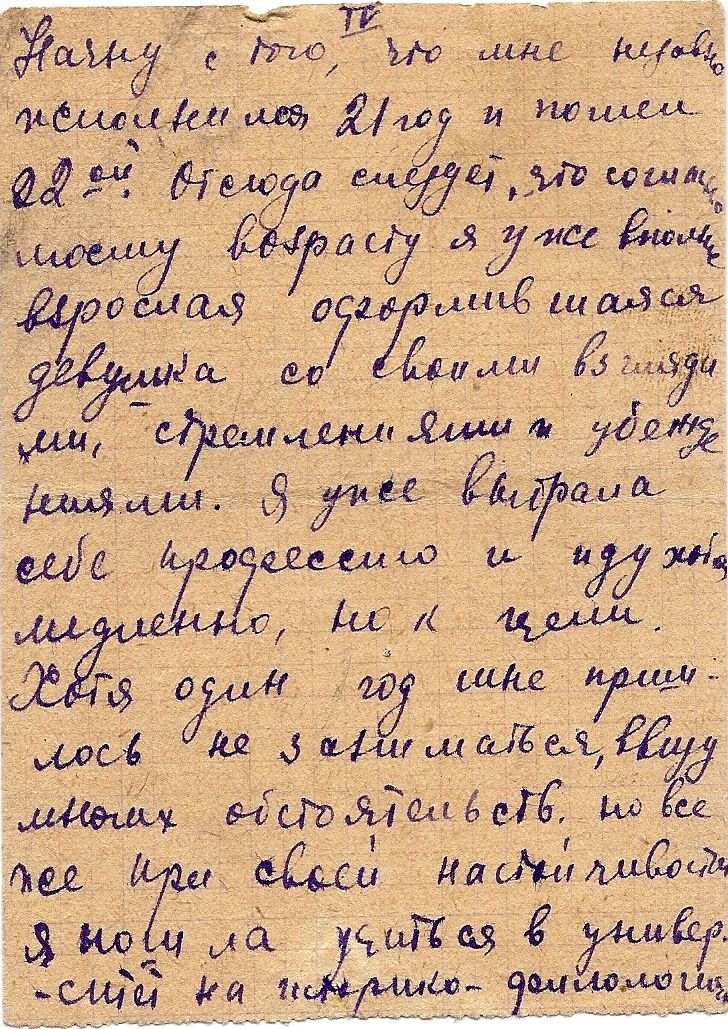 IV
Начну с того, что мне недавно
исполнился 21 год и пошел
22ой. Отсюда следует, что согласно
моему возрасту я уже вполне
взрослая оформившаяся
девушка со своими взгляда
ми, стремлениями и убежде
ниями. Я уже выбрала
себе профессию и иду хотя
медленно, но к цели.
Хотя один год мне приш-
лось не заниматься, ввиду
многих обстоятельств. но все
же при своей настойчивости
я пошла учиться в универ.
-ситет на историко-филологич